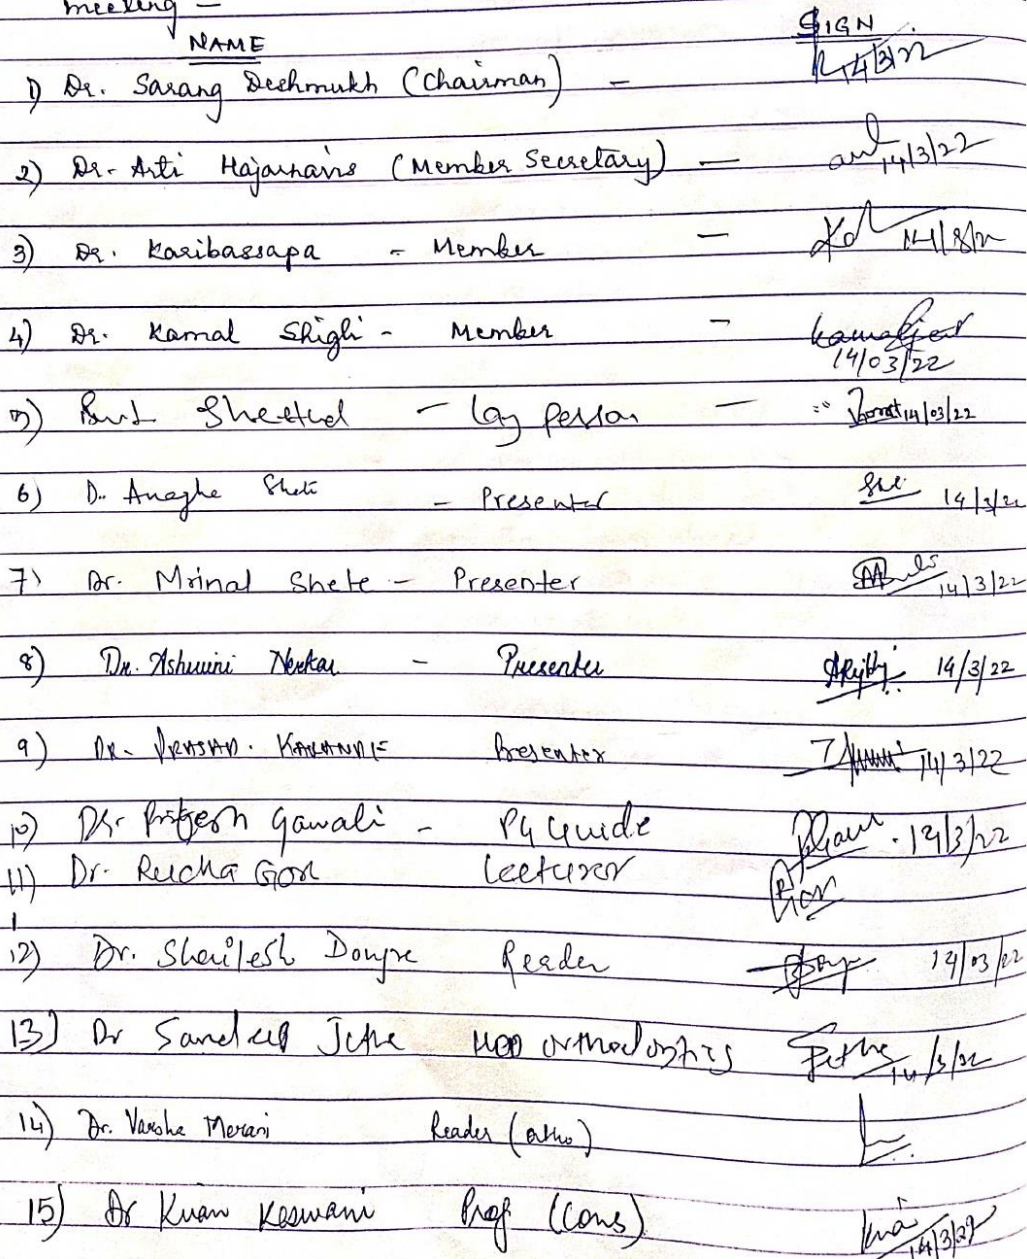 meeting -
NAME SIGN
1) Dr. Sarang Deshmukh (Chairman) - 14/3/22
2) Dr. Arti Hajarnavis (Member Secretary) - 14/3/22
3) Dr. Karibassapa - Member - 14/3/22
4) Dr. Kamal Shigli - Member -
14/03/22
5) - Lay person - 14/03/22
6) Dr. Anagha Shete - Presenter 14/3/22
7) Dr. Mrinal Shete - Presenter 14/3/22
8) Dr. Ashwini Nerkar - Presenter 14/3/22
9) DR. PRASAD. KARANDE Presenter 14/3/22
10) Dr. Pritesh Gawali - PG Guide 14/3/22
11) Dr. Rucha Gore Lecturer
12) Dr. Shailesh Dongre Reader 14/03/22
13) Dr Sandeep Jethe HOD orthodontics Jethe 14/3/22
14) Dr. Varsha Merani Reader (ortho)
15) Dr Kiran Keswani Prof (Cons) 14/3/22